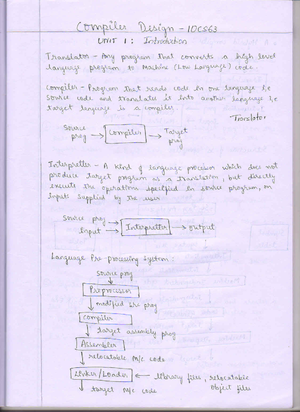 Compiler Design - 10CS63
UNIT 1 : Introduction
Translator - Any program that converts a high level
language program to Machine (Low Language) code.
Compiler - Program that reads code in one language i.e
source code and translates it into another language i.e
target language is a compiler
Translator
Source prog → Compiler → Target prog
Interpreter - A kind of language processor which does not
produce target program as a translation, but directly
execute the operations specified in source program, on
inputs supplied by the user
Source prog
Input → Interpreter → output
Language Pre processing System :
source prog
Preprocessor
modified src prog
Compiler
target assembly prog
Assembler
relocatable M/c code
Linker/Loader ← library files, relocatable
object files
target M/c code